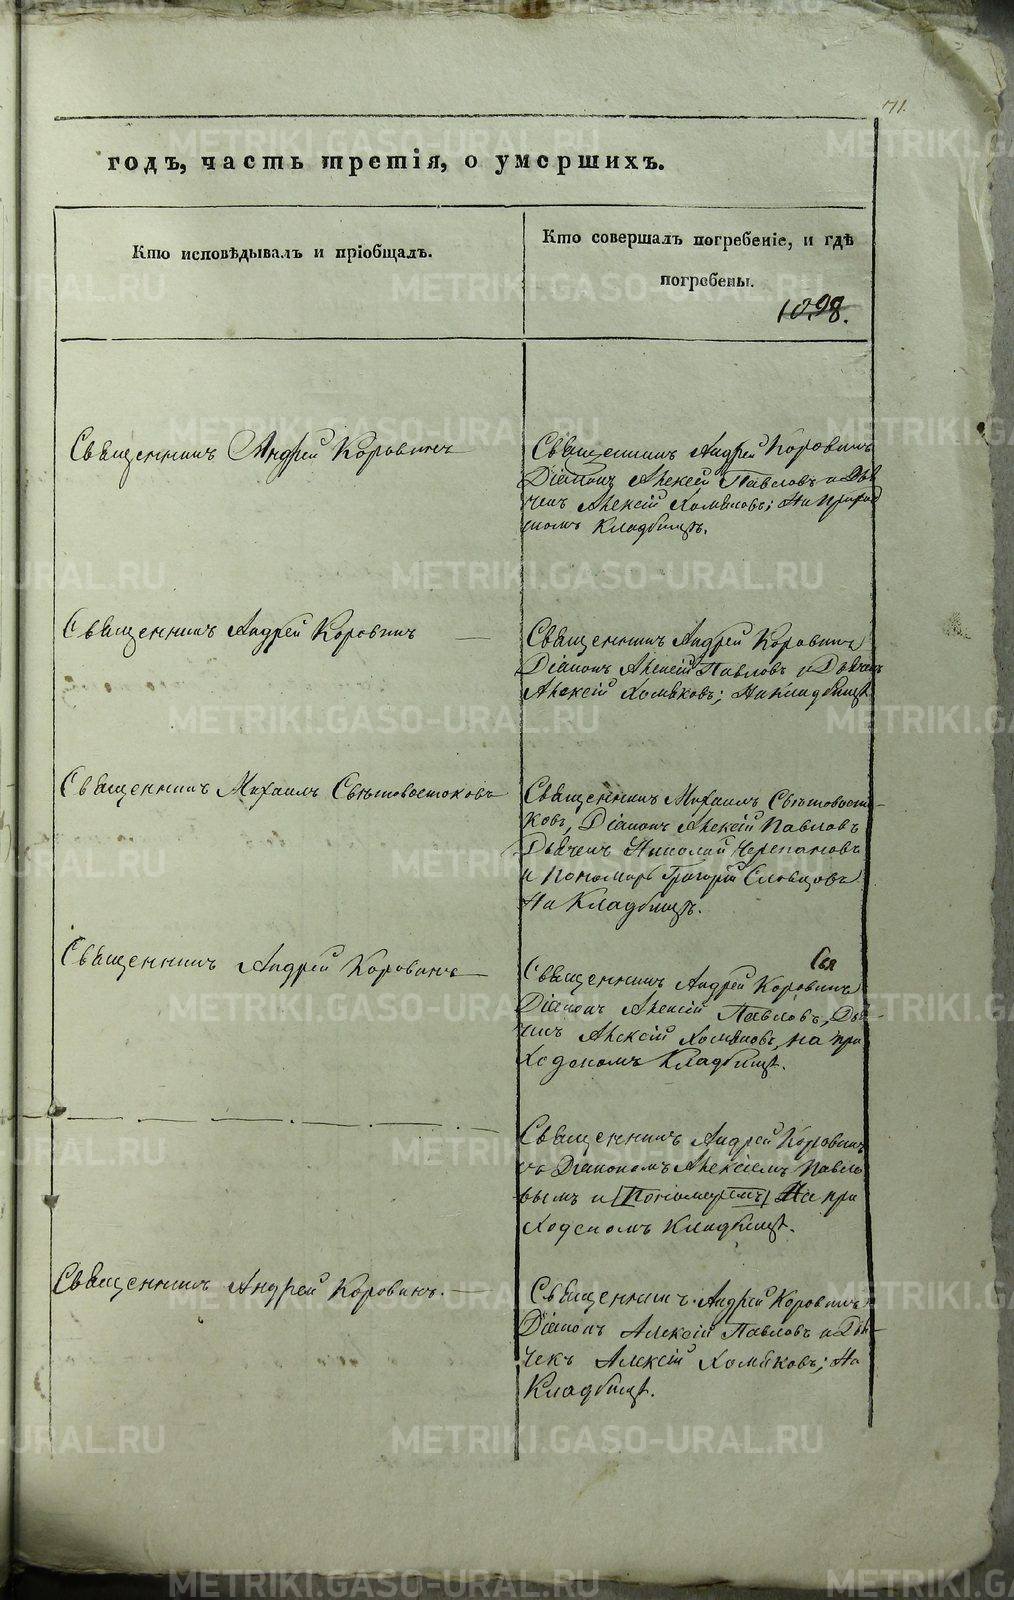 71.
годъ, часть третія, о умершихъ.
Кто исповѣдывалъ и пріобщалъ.
Кто совершалъ погребеніе, и гдѣ
погребены.
1098.
Священникъ Андрей Коровинъ
Священникъ Андрей Коровинъ
Діаконъ Алексѣй Павловъ и Дья
чекъ Алексій Хомяковъ; На приход
скомъ Кладбищѣ.
Священникъ Андрей Коровинъ
Священникъ Андрей Коровинъ
Діаконъ Алексій Павловъ и Дьячекъ
Алексій Хомяковъ; На кладбищѣ
Священникъ Михаилъ Свѣтовостоковъ
Священникъ Михаилъ Свѣтовосто-
ковъ, Діаконъ Алексій Павловъ
Дьячекъ Николай Черепановъ
и Пономарь Григорій Словцовъ
На Кладбищѣ.
Священникъ Андрей Коровинъ
Священникъ Андрей Коровинъ
Діаконъ Алексій Павловъ, Дья-
чекъ Алексій Хомяковъ, на при
ходскомъ Кладбищѣ.
Священникъ Андрей Коровинъ
съ Діакономъ Алексіемъ Павло
вымъ и Пономаремъ На при
ходскомъ Кладбищѣ.
Священникъ Андрей Коровинъ.
Священникъ Андрей Коровинъ
Діаконъ Алексій Павловъ и Дья-
чекъ Алексій Хомяковъ; На
Кладбищѣ.
METRIKI.GASO-URAL.RU